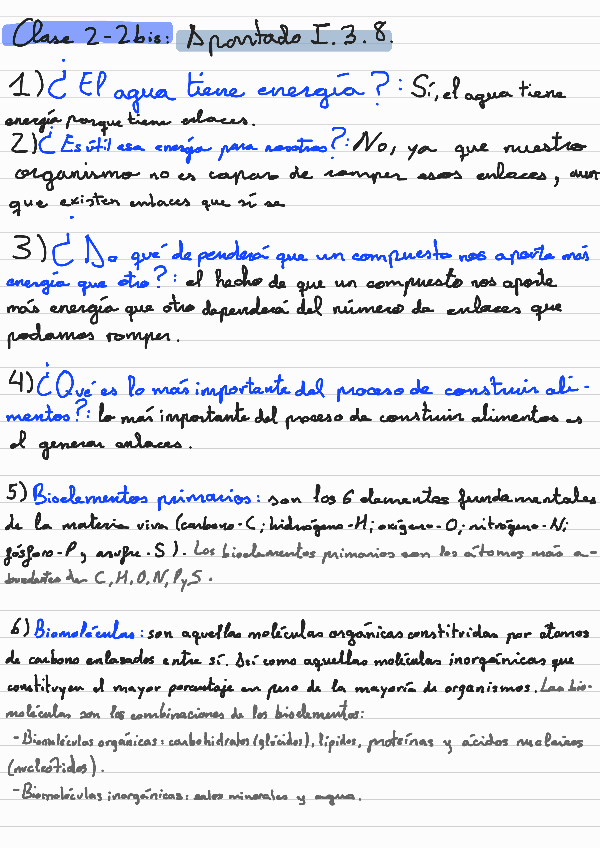 Clase 2-2bis: Apartado I.3.8.
1) ¿El agua tiene energía?: Sí, el agua tiene
energía porque tiene enlaces.
2) ¿Es útil esa energía para nosotros?: No, ya que nuestro
organismo no es capaz de romper esos enlaces, aun
que existen enlaces que sí se
3) ¿De qué dependerá que un compuesto nos aporte más
energía que otro?: el hecho de que un compuesto nos aporte
más energía que otro dependerá del número de enlaces que
podamos romper.
4) ¿Qué es lo más importante del proceso de construir ali-
mentos?: lo más importante del proceso de construir alimentos es
el generar enlaces.
5) Bioelementos primarios: son los 6 elementos fundamentales
de la materia viva (carbono-C; hidrógeno-H; oxígeno-O; nitrógeno-N;
fósforo-P y azufre-S). Los bioelementos primarios son los átomos más a-
bundantes den C, H, O, N, P y S.
6) Biomoléculas: son aquellas moléculas orgánicas constituidas por átomos
de carbono enlazados entre sí. Así como aquellas moléculas inorgánicas que
constituyen el mayor porcentaje en peso de la mayoría de organismos. Las bio-
moléculas son las combinaciones de los bioelementos:
- Biomoléculas orgánicas: carbohidratos (glúcidos), lípidos, proteínas y ácidos nucleicos
(nucleótidos).
- Biomoléculas inorgánicas: sales minerales y agua.